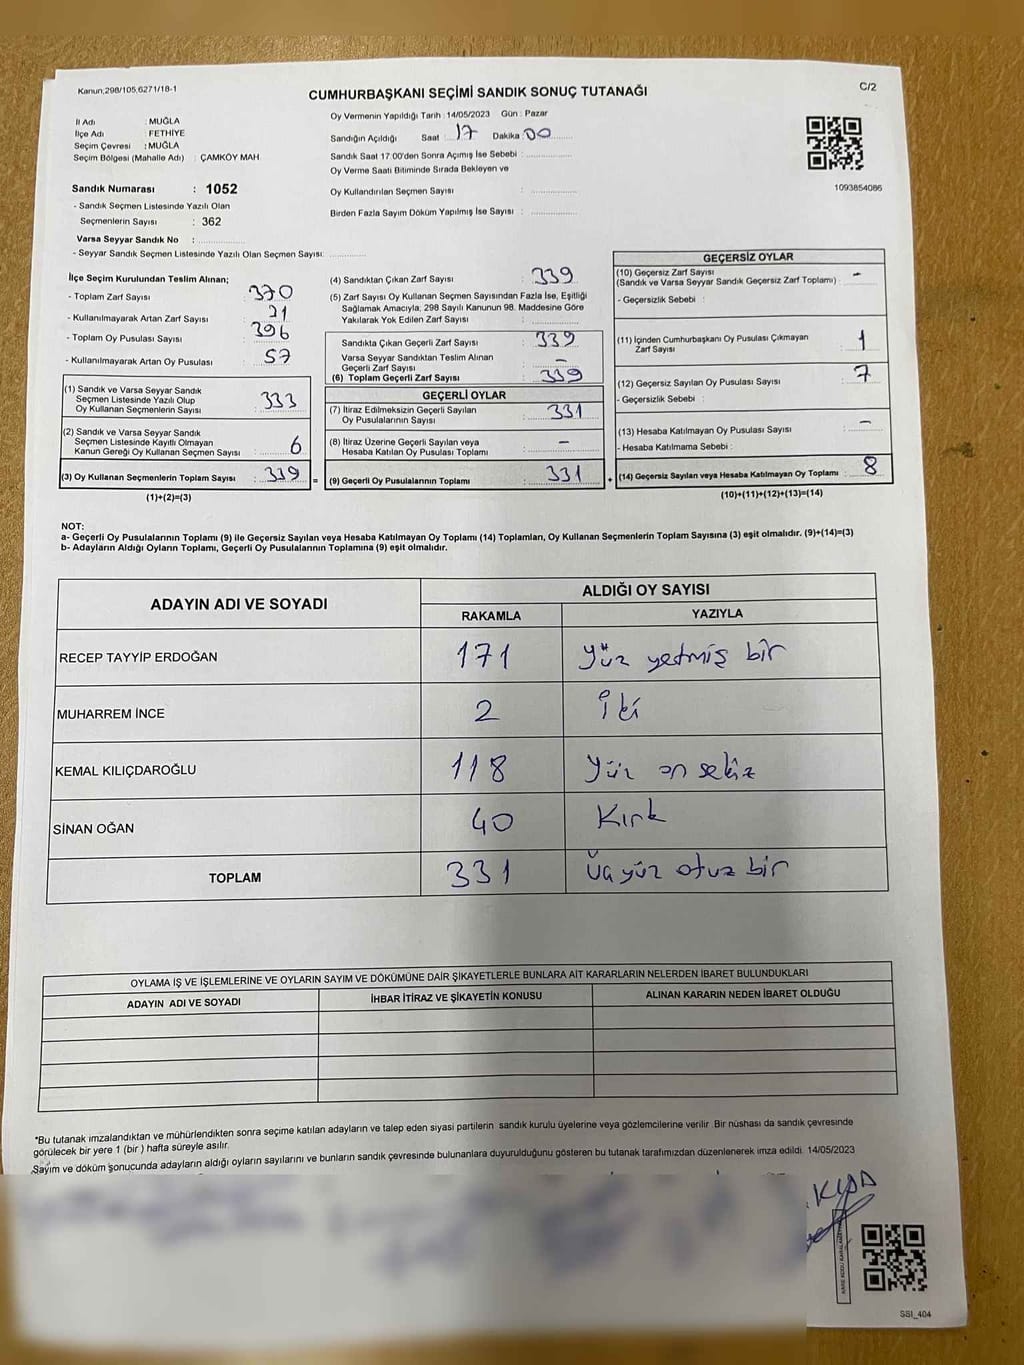 Kanun,298/105,6271/18-1
CUMHURBAŞKANI SEÇİMİ SANDIK SONUÇ TUTANAĞI
C/2
İl Adı : MUĞLA
İlçe Adı : FETHİYE
Seçim Çevresi : MUĞLA
Seçim Bölgesi (Mahalle Adı) : ÇAMKÖY MAH.
Sandık Numarası : 1052
- Sandık Seçmen Listesinde Yazılı Olan
Seçmenlerin Sayısı : 362
Varsa Seyyar Sandık No :
- Seyyar Sandık Seçmen Listesinde Yazılı Olan Seçmen Sayısı:
Oy Vermenin Yapıldığı Tarih : 14/05/2023 Gün : Pazar
Sandığın Açıldığı Saat : 17 Dakika : 00
Sandık Saat 17.00'den Sonra Açımış İse Sebebi :
Oy Verme Saati Bitiminde Sırada Bekleyen ve
Oy Kullandırılan Seçmen Sayısı :
Birden Fazla Sayım Döküm Yapılmış İse Sayısı :
1093854086
İlçe Seçim Kurulundan Teslim Alınan;
- Toplam Zarf Sayısı : 370
- Kullanılmayarak Artan Zarf Sayısı : 21
- Toplam Oy Pusulası Sayısı : 396
- Kullanılmayarak Artan Oy Pusulası : 57
(1) Sandık ve Varsa Seyyar Sandık
Seçmen Listesinde Yazılı Olup
Oy Kullanan Seçmenlerin Sayısı : 333
(2) Sandık ve Varsa Seyyar Sandık
Seçmen Listesinde Kayıtlı Olmayan
Kanun Gereği Oy Kullanan Seçmen Sayısı : 6
(3) Oy Kullanan Seçmenlerin Toplam Sayısı : 339 =
(1)+(2)=(3)
(4) Sandıktan Çıkan Zarf Sayısı : 339
(5) Zarf Sayısı Oy Kullanan Seçmen Sayısından Fazla İse, Eşitliği
Sağlamak Amacıyla, 298 Sayılı Kanunun 98. Maddesine Göre
Yakılarak Yok Edilen Zarf Sayısı :
Sandıkta Çıkan Geçerli Zarf Sayısı : 339
Varsa Seyyar Sandıktan Teslim Alınan
Geçerli Zarf Sayısı : -
(6) Toplam Geçerli Zarf Sayısı : 339
GEÇERLİ OYLAR
(7) İtiraz Edilmeksizin Geçerli Sayılan
Oy Pusulalarının Sayısı : 331
(8) İtiraz Üzerine Geçerli Sayılan veya
Hesaba Katılan Oy Pusulası Toplamı : -
(9) Geçerli Oy Pusulalarının Toplamı : 331 +
GEÇERSİZ OYLAR
(10) Geçersiz Zarf Sayısı
(Sandık ve Varsa Seyyar Sandık Geçersiz Zarf Toplamı) : -
- Geçersizlik Sebebi :
(11) İçinden Cumhurbaşkanı Oy Pusulası Çıkmayan
Zarf Sayısı : 1
(12) Geçersiz Sayılan Oy Pusulası Sayısı : 7
- Geçersizlik Sebebi :
(13) Hesaba Katılmayan Oy Pusulası Sayısı : -
- Hesaba Katılmama Sebebi :
(14) Geçersiz Sayılan veya Hesaba Katılmayan Oy Toplamı : 8
(10)+(11)+(12)+(13)=(14)
NOT:
a- Geçerli Oy Pusulalarının Toplamı (9) ile Geçersiz Sayılan veya Hesaba Katılmayan Oy Toplamı (14) Toplamları, Oy Kullanan Seçmenlerin Toplam Sayısına (3) eşit olmalıdır. (9)+(14)=(3)
b- Adayların Aldığı Oyların Toplamı, Geçerli Oy Pusulalarının Toplamına (9) eşit olmalıdır.
ADAYIN ADI VE SOYADI
ALDIĞI OY SAYISI
RAKAMLA YAZIYLA
RECEP TAYYİP ERDOĞAN 171 Yüz yetmiş bir
MUHARREM İNCE 2 İki
KEMAL KILIÇDAROĞLU 118 Yüz on sekiz
SİNAN OĞAN 40 Kırk
TOPLAM 331 Üçyüz otuz bir
OYLAMA İŞ VE İŞLEMLERİNE VE OYLARIN SAYIM VE DÖKÜMÜNE DAİR ŞİKAYETLERLE BUNLARA AİT KARARLARIN NELERDEN İBARET BULUNDUKLARI
ADAYIN ADI VE SOYADI İHBAR İTİRAZ VE ŞİKAYETİN KONUSU ALINAN KARARIN NEDEN İBARET OLDUĞU
*Bu tutanak imzalandıktan ve mühürlendikten sonra seçime katılan adayların ve talep eden siyasi partilerin sandık kurulu üyelerine veya gözlemcilerine verilir. Bir nüshası da sandık çevresinde
görülecek bir yere 1 (bir) hafta süreyle asılır.
Sayım ve döküm sonucunda adayların aldığı oyların sayılarını ve bunların sandık çevresinde bulunanlara duyurulduğunu gösteren bu tutanak tarafımızdan düzenlenerek imza edildi. 14/05/2023
SSI_404